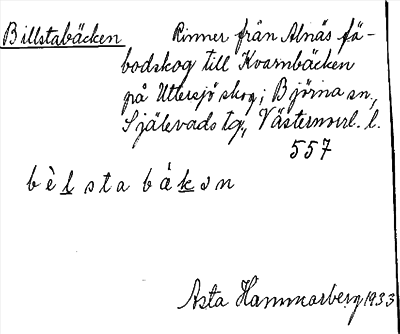 Billstabäcken Rinner från Alnäs fä-
bodskog till Kvarnbäcken
på Uttersjö skog; Björna sn,
Själevads tg, Västernorrl. l.
557
bèlsta bákən
Asta Hammarberg 1933